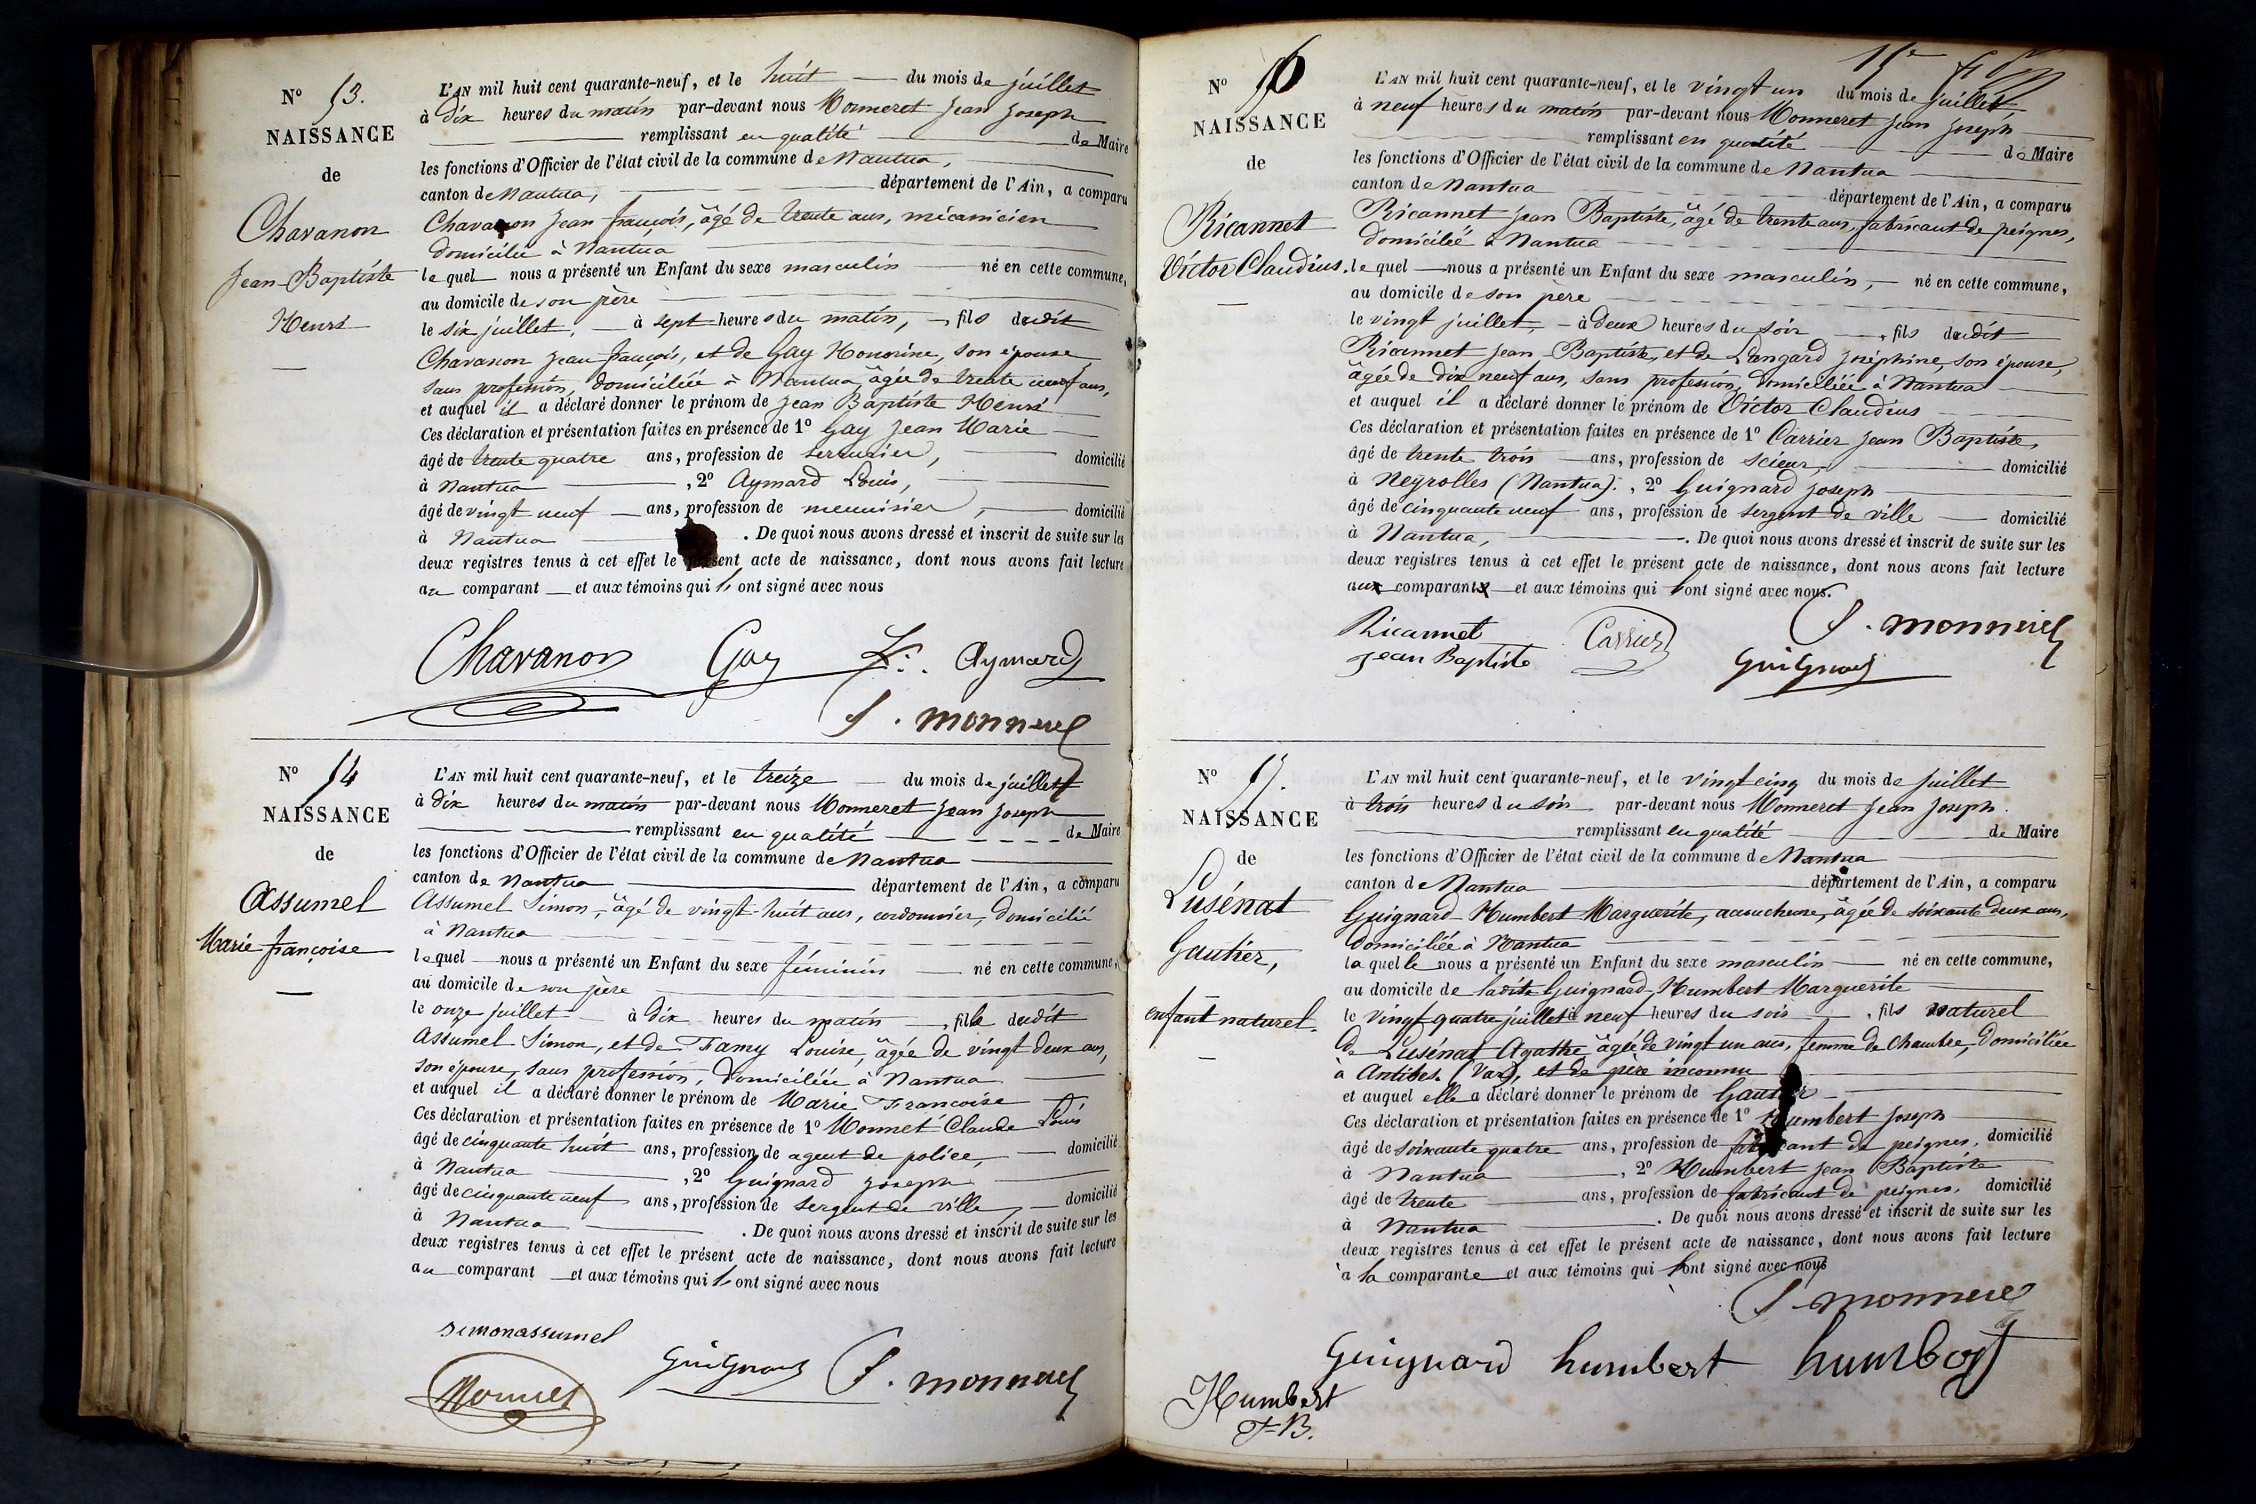 N° 53.
NAISSANCE
de
Chavanon
Jean-Baptiste
Henri
L'AN mil huit cent quarante-neuf, et le huit du mois de juillet
à dix heures du matin par-devant nous Monneret Jean Joseph
remplissant en qualité de Maire
les fonctions d'Officier de l'état civil de la commune de Nantua,
canton de Nantua, département de l'Ain, a comparu
Chavanon Jean françois, âgé de trente ans, mécanicien
domicilié à Nantua
lequel nous a présenté un Enfant du sexe masculin né en cette commune,
au domicile de son père
le six juillet, à sept heures du matin, fils dudit
Chavanon Jean françois, et de Gay Honorine, son épouse
sans profession, domiciliée à Nantua, âgée de trente neuf ans,
et auquel il a déclaré donner le prénom de Jean Baptiste Henri
Ces déclaration et présentation faites en présence de 1° Gay Jean Marie
âgé de trente quatre ans, profession de serrurier, domicilié
à Nantua, 2° Aymard Louis,
âgé de vingt neuf ans, profession de menuisier, domicilié
à Nantua. De quoi nous avons dressé et inscrit de suite sur les
deux registres tenus à cet effet le présent acte de naissance, dont nous avons fait lecture
au comparant et aux témoins qui l'ont signé avec nous
Chavanon Gay L. Aymard
J. monneret
N° 54
NAISSANCE
de
Assumel
Marie françoise
L'AN mil huit cent quarante-neuf, et le treize du mois de juillet
à dix heures du matin par-devant nous Monneret Jean Joseph
remplissant en qualité de Maire
les fonctions d'Officier de l'état civil de la commune de Nantua
canton de Nantua département de l'Ain, a comparu
Assumel Simon, âgé de vingt-huit ans, cordonnier, domicilié
à Nantua
lequel nous a présenté un Enfant du sexe féminin né en cette commune,
au domicile de son père
le onze juillet à dix heures du matin, fille dudit
Assumel Simon, et de Famy Louise, âgée de vingt deux ans,
son épouse, sans profession, domiciliée à Nantua
et auquel il a déclaré donner le prénom de Marie Françoise
Ces déclaration et présentation faites en présence de 1° Monnet Claude Louis
âgé de cinquante huit ans, profession de agent de police, domicilié
à Nantua, 2° Guignard Joseph
âgé de cinquante neuf ans, profession de sergent de ville, domicilié
à Nantua. De quoi nous avons dressé et inscrit de suite sur les
deux registres tenus à cet effet le présent acte de naissance, dont nous avons fait lecture
au comparant et aux témoins qui l'ont signé avec nous
simonassumel
Monnet Guignard J. monneret
N° 56
NAISSANCE
de
Ricannet
Victor Claudius.
L'AN mil huit cent quarante-neuf, et le vingt un du mois de juillet
à neuf heures du matin par-devant nous Monneret Jean Joseph
remplissant en qualité de Maire
les fonctions d'Officier de l'état civil de la commune de Nantua
canton de Nantua département de l'Ain, a comparu
Ricannet Jean Baptiste, âgé de trente ans, fabricant de peignes,
domicilié à Nantua
lequel nous a présenté un Enfant du sexe masculin, né en cette commune,
au domicile de son père
le vingt juillet, à deux heures du soir, fils dudit
Ricannet Jean-Baptiste, et de Langard Joséphine, son épouse,
âgée de dix neuf ans, sans profession, domiciliée à Nantua
et auquel il a déclaré donner le prénom de Victor Claudius
Ces déclaration et présentation faites en présence de 1° Carrier Jean Baptiste,
âgé de trente trois ans, profession de scieur, domicilié
à Neyrolles (Nantua)., 2° Guignard Joseph
âgé de cinquante neuf ans, profession de sergent de ville domicilié
à Nantua,. De quoi nous avons dressé et inscrit de suite sur les
deux registres tenus à cet effet le présent acte de naissance, dont nous avons fait lecture
aux comparants et aux témoins qui l'ont signé avec nous.
Ricannet
Jean Baptiste Carrier J. monneret
Guignard
N° 57.
NAISSANCE
de
Lusénat
Gautier,
enfant naturel.
L'AN mil huit cent quarante-neuf, et le vingt cinq du mois de juillet
à trois heures du soir par-devant nous Monneret Jean Joseph.
remplissant en qualité de Maire
les fonctions d'Officier de l'état civil de la commune de Nantua
canton de Nantua département de l'Ain, a comparu
Guignard-Humbert Marguerite, accucheuse, âgée de soixante deux ans,
domiciliée à Nantua
laquelle nous a présenté un Enfant du sexe masculin né en cette commune,
au domicile de ladite Guignard-Humbert Marguerite
le vingt quatre juillet à neuf heures du soir, fils naturel
de Lusénat Agathe âgée de vingt un ans, femme de chambre, domiciliée
à Antibes. (Var), et de père inconnu
et auquel elle a déclaré donner le prénom de Gautier
Ces déclaration et présentation faites en présence de 1° Humbert Joseph
âgé de soixante quatre ans, profession de fabricant de peignes, domicilié
à Nantua, 2° Humbert Jean Baptiste
âgé de trente ans, profession de fabricant de peignes, domicilié
à Nantua. De quoi nous avons dressé et inscrit de suite sur les
deux registres tenus à cet effet le présent acte de naissance, dont nous avons fait lecture
à la comparante et aux témoins qui l'ont signé avec nous
J. monneret
Guignard humbert humbert
Humbert
J-B.